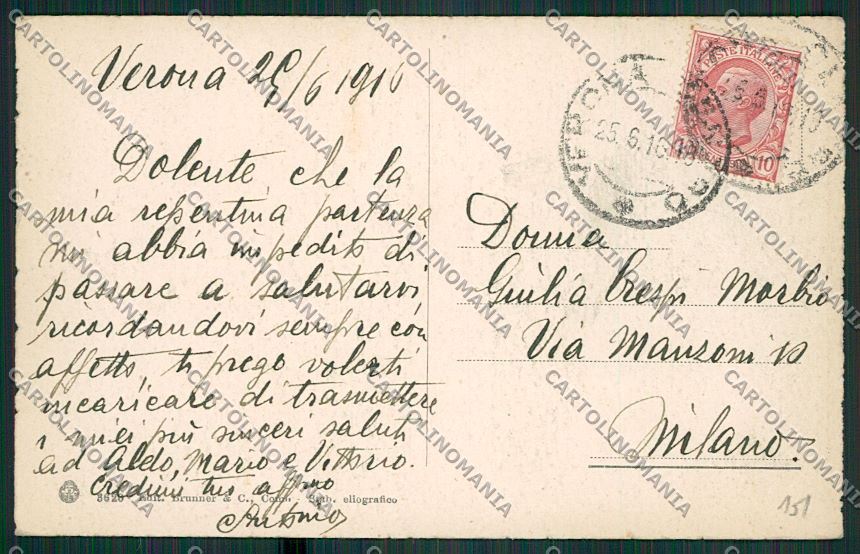 Verona 25/6 1916
Dolente che la
mia repentina partenza
mi abbia impedito di
passare a salutarvi
ricordandovi sempre con
affetto, ti prego volerti
incaricare di trasmettere
i miei più sinceri saluti
ad Aldo, Mario e Vittorio.
Credimi tuo aff.mo
Antonio
3626 - Edit. Brunner & C., Como - Stab. eliografico
POSTE ITALIANE
10
VERONA
25.6.16.18
Donna
Giulia Crespi Morbio
Via Manzoni
Milano.
151
CARTOLINOMANIA